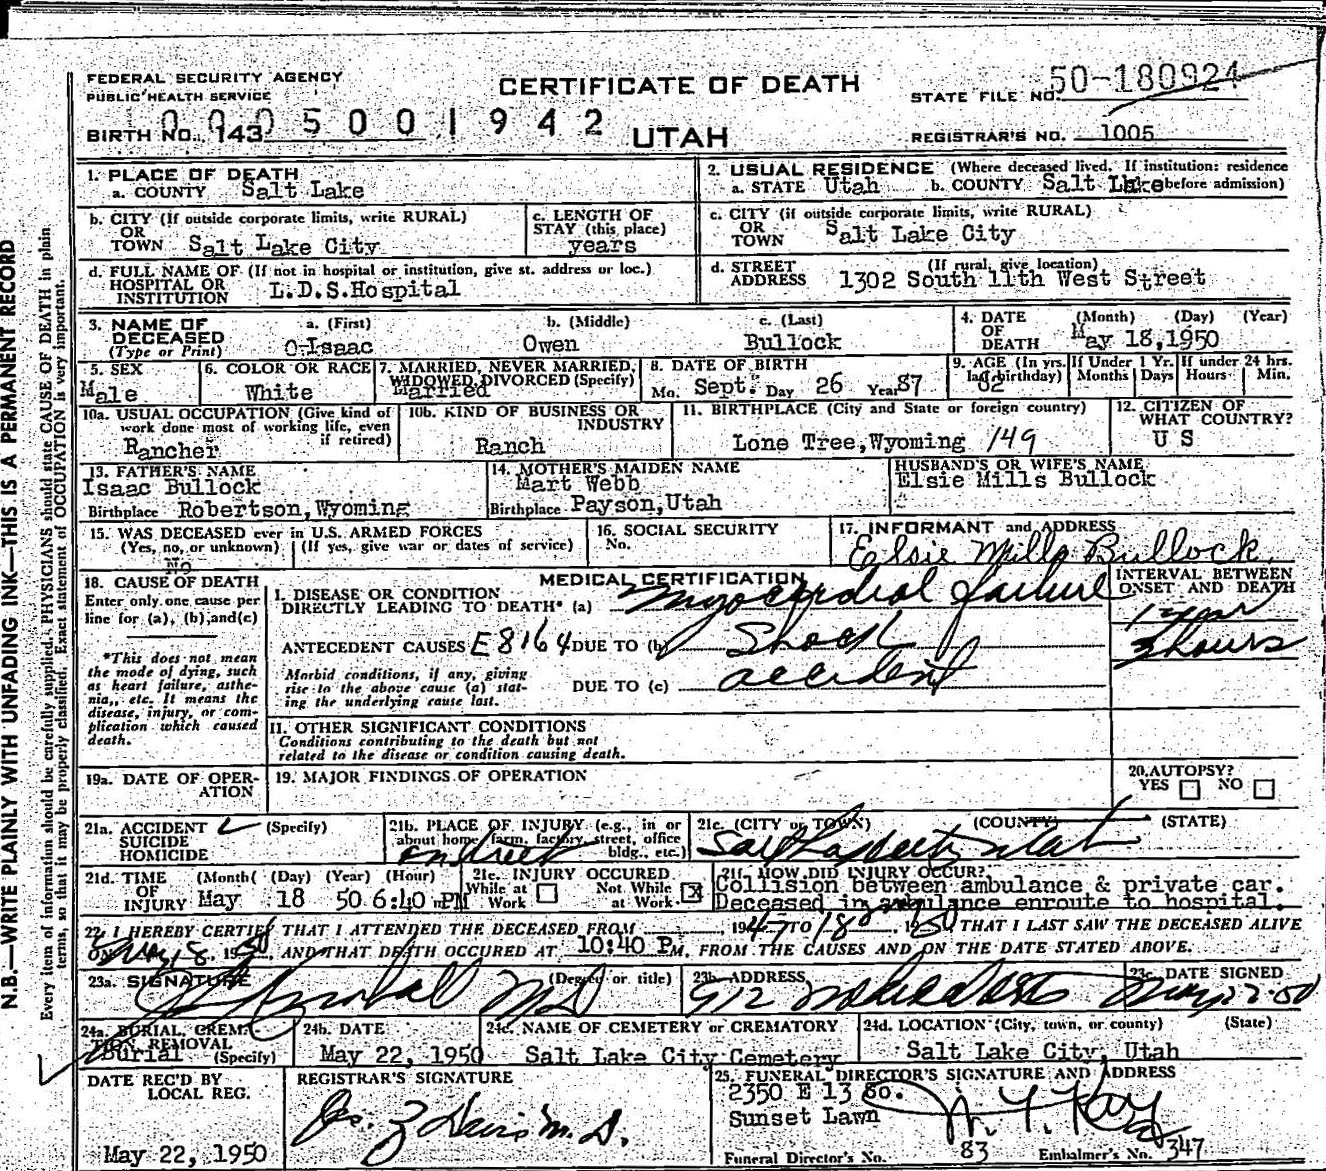 FEDERAL SECURITY AGENCY
PUBLIC HEALTH SERVICE
CERTIFICATE OF DEATH
STATE FILE NO. 50-180924
0005001942
BIRTH NO. 143
UTAH
REGISTRAR'S NO. 1005
1. PLACE OF DEATH
a. COUNTY Salt Lake
2. USUAL RESIDENCE (Where deceased lived. If institution: residence
a. STATE Utah b. COUNTY Salt Lake before admission)
b. CITY (If outside corporate limits, write RURAL)
OR
TOWN Salt Lake City
c. LENGTH OF
STAY (this place)
years
c. CITY (if outside corporate limits, write RURAL)
OR
TOWN Salt Lake City
d. FULL NAME OF (If not in hospital or institution, give st. address or loc.)
HOSPITAL OR
INSTITUTION L.D.S.Hospital
d. STREET (If rural, give location)
ADDRESS 1302 South 11th West Street
3. NAME OF
DECEASED
(Type or Print)
a. (First) b. (Middle) c. (Last)
O-Isaac Owen Bullock
4. DATE (Month) (Day) (Year)
OF
DEATH May 18,1950
5. SEX
Male
6. COLOR OR RACE
White
7. MARRIED, NEVER MARRIED,
WIDOWED, DIVORCED (Specify)
Married
8. DATE OF BIRTH
Mo. Sept. Day 26 Year 87
9. AGE (In yrs. last birthday)
62
If Under 1 Yr.
Months Days
If under 24 hrs.
Hours Min.
10a. USUAL OCCUPATION (Give kind of
work done most of working life, even
if retired)
Rancher
10b. KIND OF BUSINESS OR
INDUSTRY
Ranch
11. BIRTHPLACE (City and State or foreign country)
Lone Tree,Wyoming 149
12. CITIZEN OF
WHAT COUNTRY?
U S
13. FATHER'S NAME
Isaac Bullock
Birthplace Robertson,Wyoming
14. MOTHER'S MAIDEN NAME
Mart Webb
Birthplace Payson,Utah
HUSBAND'S OR WIFE'S NAME
Elsie Mills Bullock
15. WAS DECEASED ever in U.S. ARMED FORCES
(Yes, no, or unknown) (If yes, give war or dates of service)
No
16. SOCIAL SECURITY
No.
17. INFORMANT and ADDRESS
Elsie Mills Bullock
18. CAUSE OF DEATH
Enter only one cause per
line for (a), (b), and (c)
*This does not mean
the mode of dying, such
as heart failure, asthe-
nia, etc. It means the
disease, injury, or com-
plication which caused
death.
MEDICAL CERTIFICATION
I. DISEASE OR CONDITION
DIRECTLY LEADING TO DEATH* (a) Myocardial failure
ANTECEDENT CAUSES E8164 DUE TO (b) Shock
Morbid conditions, if any, giving
rise to the above cause (a) stat-
ing the underlying cause last.
DUE TO (c) accident
INTERVAL BETWEEN
ONSET AND DEATH
1 year
3 hours
II. OTHER SIGNIFICANT CONDITIONS
Conditions contributing to the death but not
related to the disease or condition causing death.
19a. DATE OF OPER-
ATION
19. MAJOR FINDINGS OF OPERATION
20. AUTOPSY?
YES NO
21a. ACCIDENT (Specify)
SUICIDE
HOMICIDE
21b. PLACE OF INJURY (e.g., in or
about home, farm, factory, street, office
bldg., etc.)
on street
21c. (CITY or TOWN) (COUNTY) (STATE)
21d. TIME (Month) (Day) (Year) (Hour)
OF
INJURY May 18 50 6:40 PM
21e. INJURY OCCURED
While at Work Not While at Work X
21f. HOW DID INJURY OCCUR?
Collision between ambulance & private car.
Deceased in ambulance enroute to hospital.
22. I HEREBY CERTIFY THAT I ATTENDED THE DECEASED FROM 1947 TO 18 1950 THAT I LAST SAW THE DECEASED ALIVE
ON May 18, 1950, AND THAT DEATH OCCURED AT 10:40 P M, FROM THE CAUSES AND ON THE DATE STATED ABOVE.
23a. SIGNATURE (Degree or title)
MD
23b. ADDRESS
912
23c. DATE SIGNED
May 22-50
24a. BURIAL, CREMA-
TION, REMOVAL
Burial (Specify)
24b. DATE
May 22, 1950
24c. NAME OF CEMETERY or CREMATORY
Salt Lake City Cemetery
24d. LOCATION (City, town, or county) (State)
Salt Lake City, Utah
DATE REC'D BY
LOCAL REG.
May 22, 1950
REGISTRAR'S SIGNATURE
M.D.
25. FUNERAL DIRECTOR'S SIGNATURE AND ADDRESS
2350 E 13 So.
Sunset Lawn
Funeral Director's No. 83 Embalmer's No. 347
N.B.—WRITE PLAINLY WITH UNFADING INK—THIS IS A PERMANENT RECORD
Every item of information should be carefully supplied. PHYSICIANS should state CAUSE OF DEATH in plain
terms, so that it may be properly classified. Exact statement of OCCUPATION is very important.